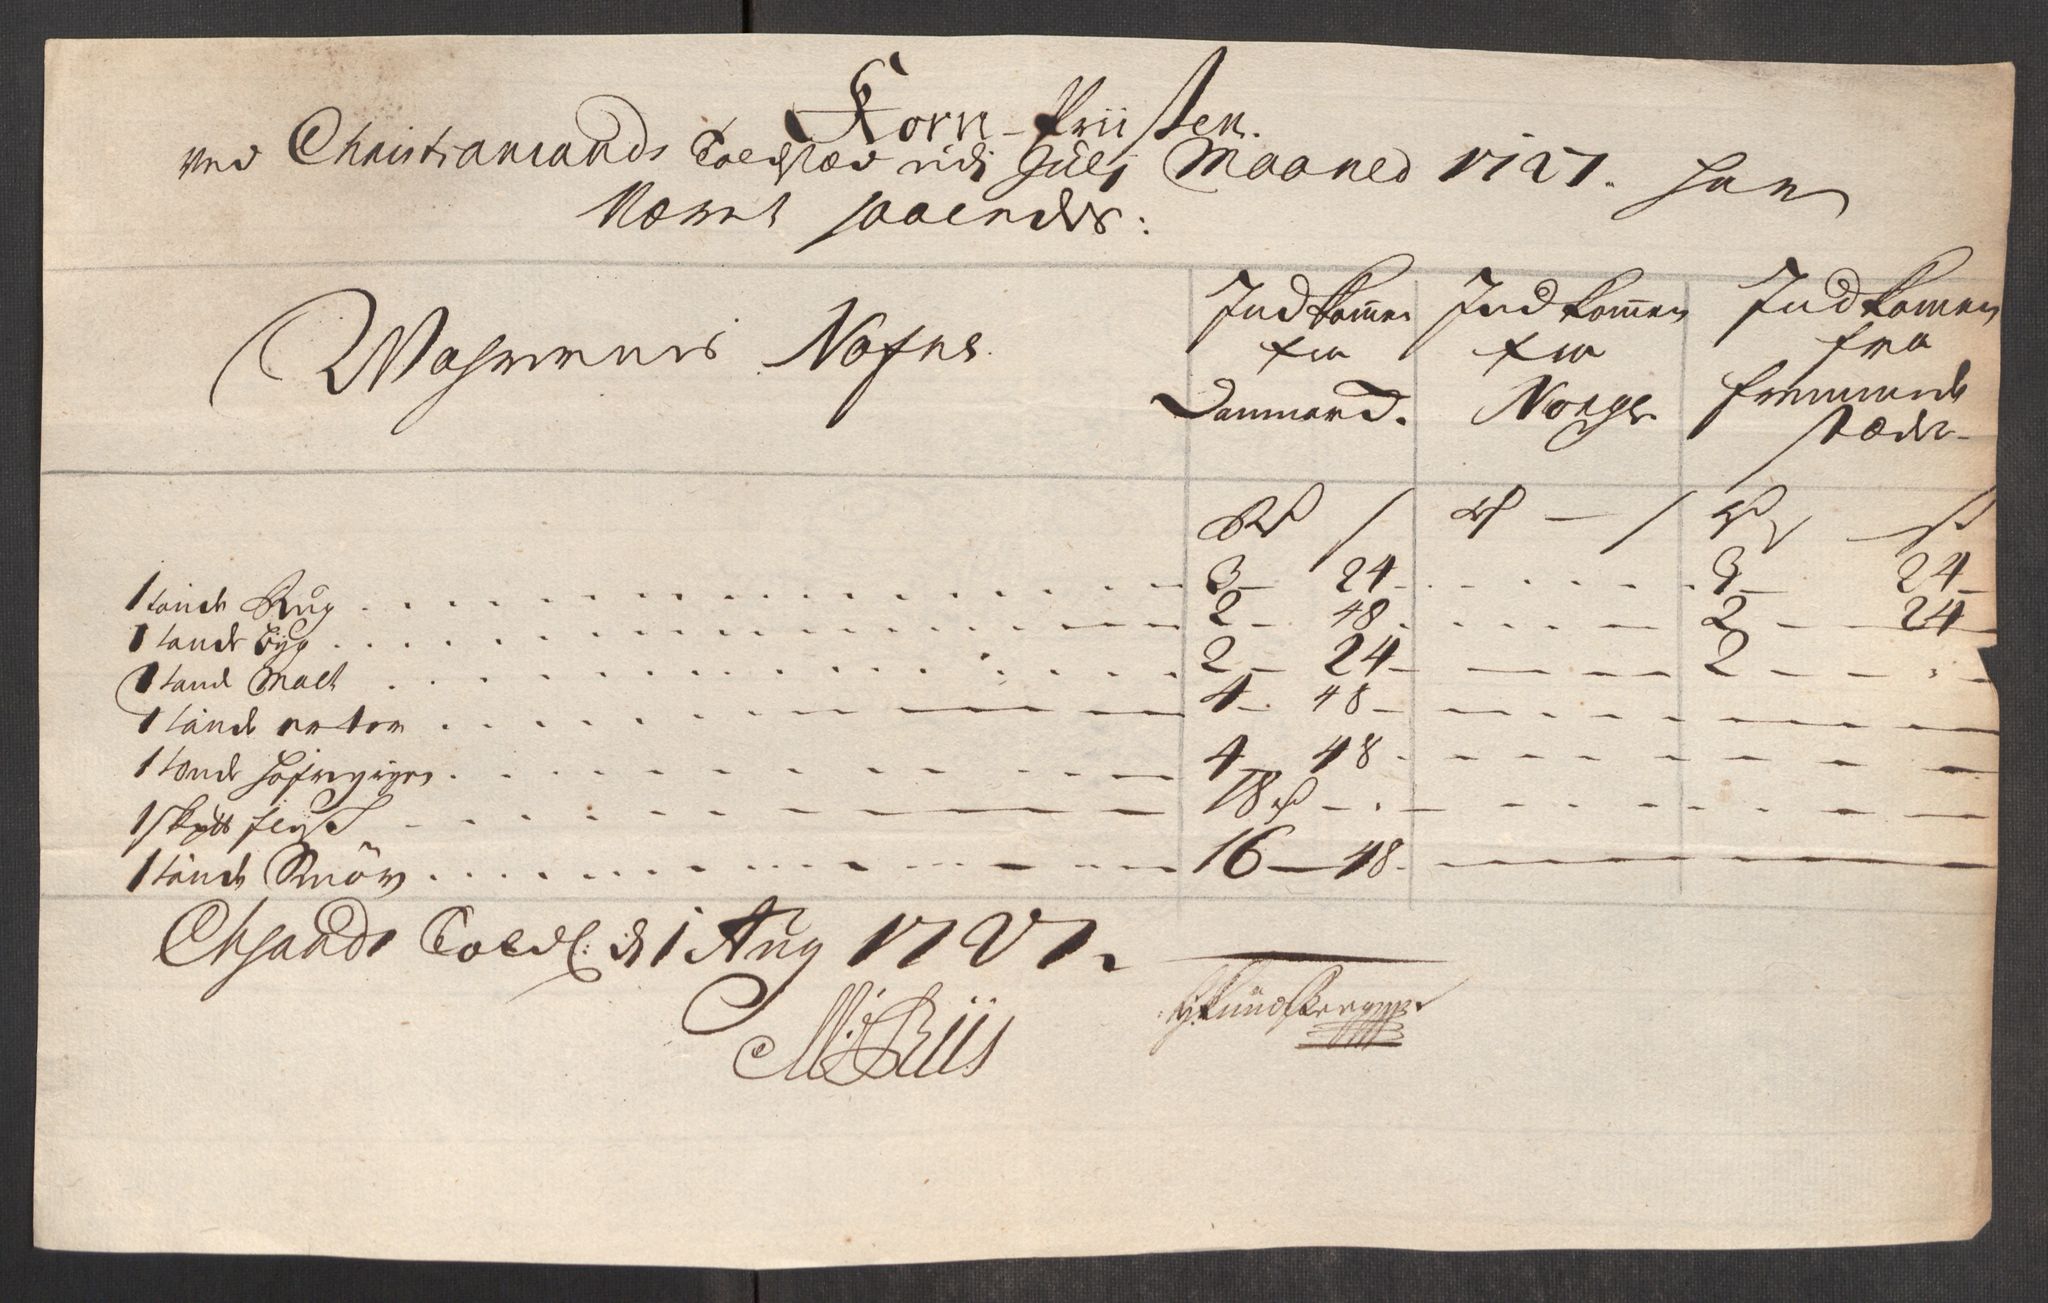 Korn-Priisten
ved Christiansands Toldstæd udi Julij Maaned 1727. har
Været saaledes:
Wahrernis Nafne
Indkommen fra Danmarck.
Indkommen fra Norge
Indkommen fra fremmede stæder
Rd ß Rd — ß Rd ß
1 tønde Rug . . . 3 — 24 — . . . 3 — 24 —
1 tønde Byg . . . 2 — 48 . . . 2 — 24
1 tønde Malt . . . 2 — 24 — . . . 2 — — . —
1 tønde erter . . . 4 — 48 — — —
1 tønde Hafregryn . . . 4 — 48 . — —
1 skp flesk — — 18 ß — . — —
1 tønde Smör . . . 16 — 48 . — —
Chsands Told: d 1 Aug 1727.
Riis